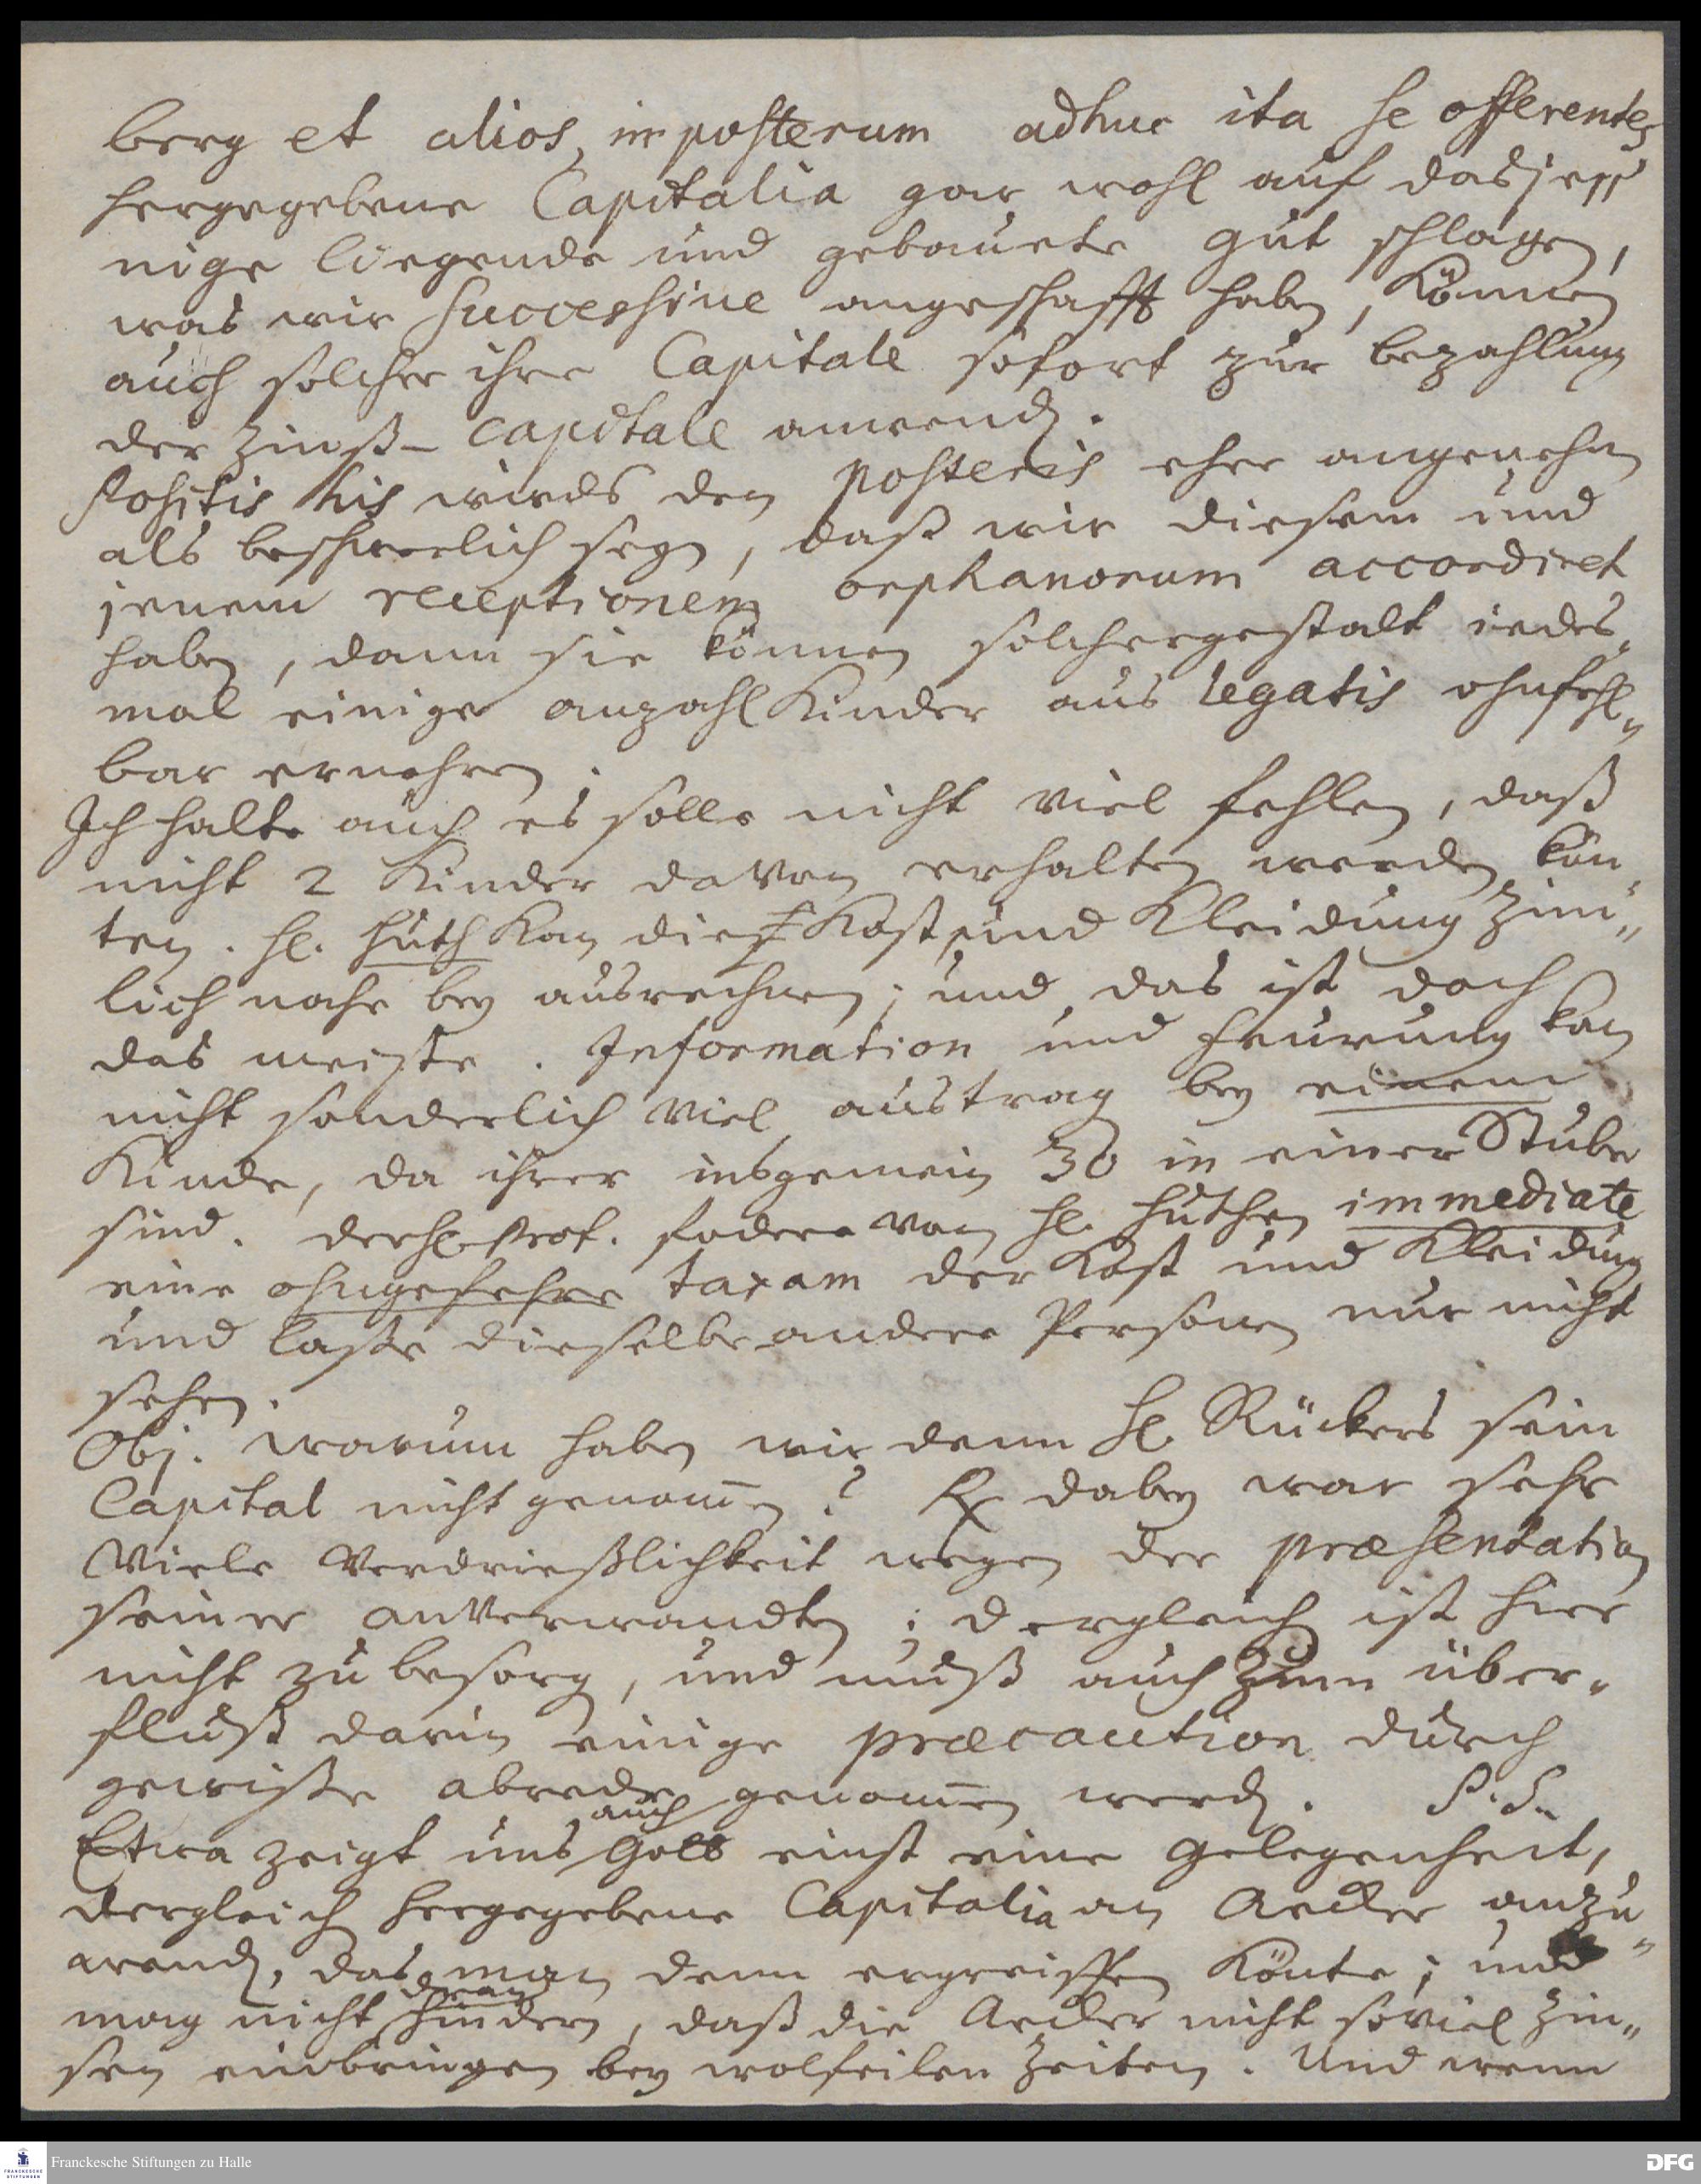 berg et alios, in posterum adhuc ita se offerentes
hergegebene Capitalia gar wohl auf dasje„
nige liegende und gebauete gut schlagen,
was wir successive angeschafft haben, können
auch solche ihre Capitale sofort zur bezahlung
der Zinß-Capitale anwenden.
Positis his wirds den posteris eher angenehm
als beschwerlich seyn, daß wir diesem und
jenem receptionem orphanorum accordiret
haben, dann sie können solchergestalt iedes„
mal einige anzahl Kinder aus legatis ohnfehl„
bar ernehren.
Ich halte auch es solle nicht viel fehlen, daß
nicht 2 Kinder davon erhalten werden kön„
ten. H. Huth kan die Kost und Kleidung zim„
lich nahe bey ausrechnen; und das ist doch
das meiste. Information und Feurung kan
nicht sonderlich viel austragen bey einem
Kinde, da ihrer insgemein 30 in einer Stube
sind. Der H. Prof. fodere von H. Huthen immediate
eine ohngefehre taxam der Kost und Kleidung
und lasse dieselbe andere Personen nur nicht
sehen.
Obj. Warum haben wir denn H. Rückers sein
Capital nicht genom̄en? Rx dabey war sehr
viele Verdrießlichkeit wegen der præsentation
seiner anverwandten; dergleichen ist hier
nicht zu besorgen, und muß auch zum über„
fluß darin einige præcaution durch
gewisse abrede genom̄en werden. P. S.
Etwa zeigt uns auch Gott einst eine Gelegenheit,
dergleichen hergegebene Capitalia an Aecker anzu„
wenden, das man denn ergreiffen könte; und
mag nicht dran hindern, daß die Aecker nicht soviel Zin„
sen einbringen bey wolfeilen Zeiten. Und wenn
Franckesche Stiftungen zu Halle
FRANCKESCHE
STIFTUNGEN
DFG